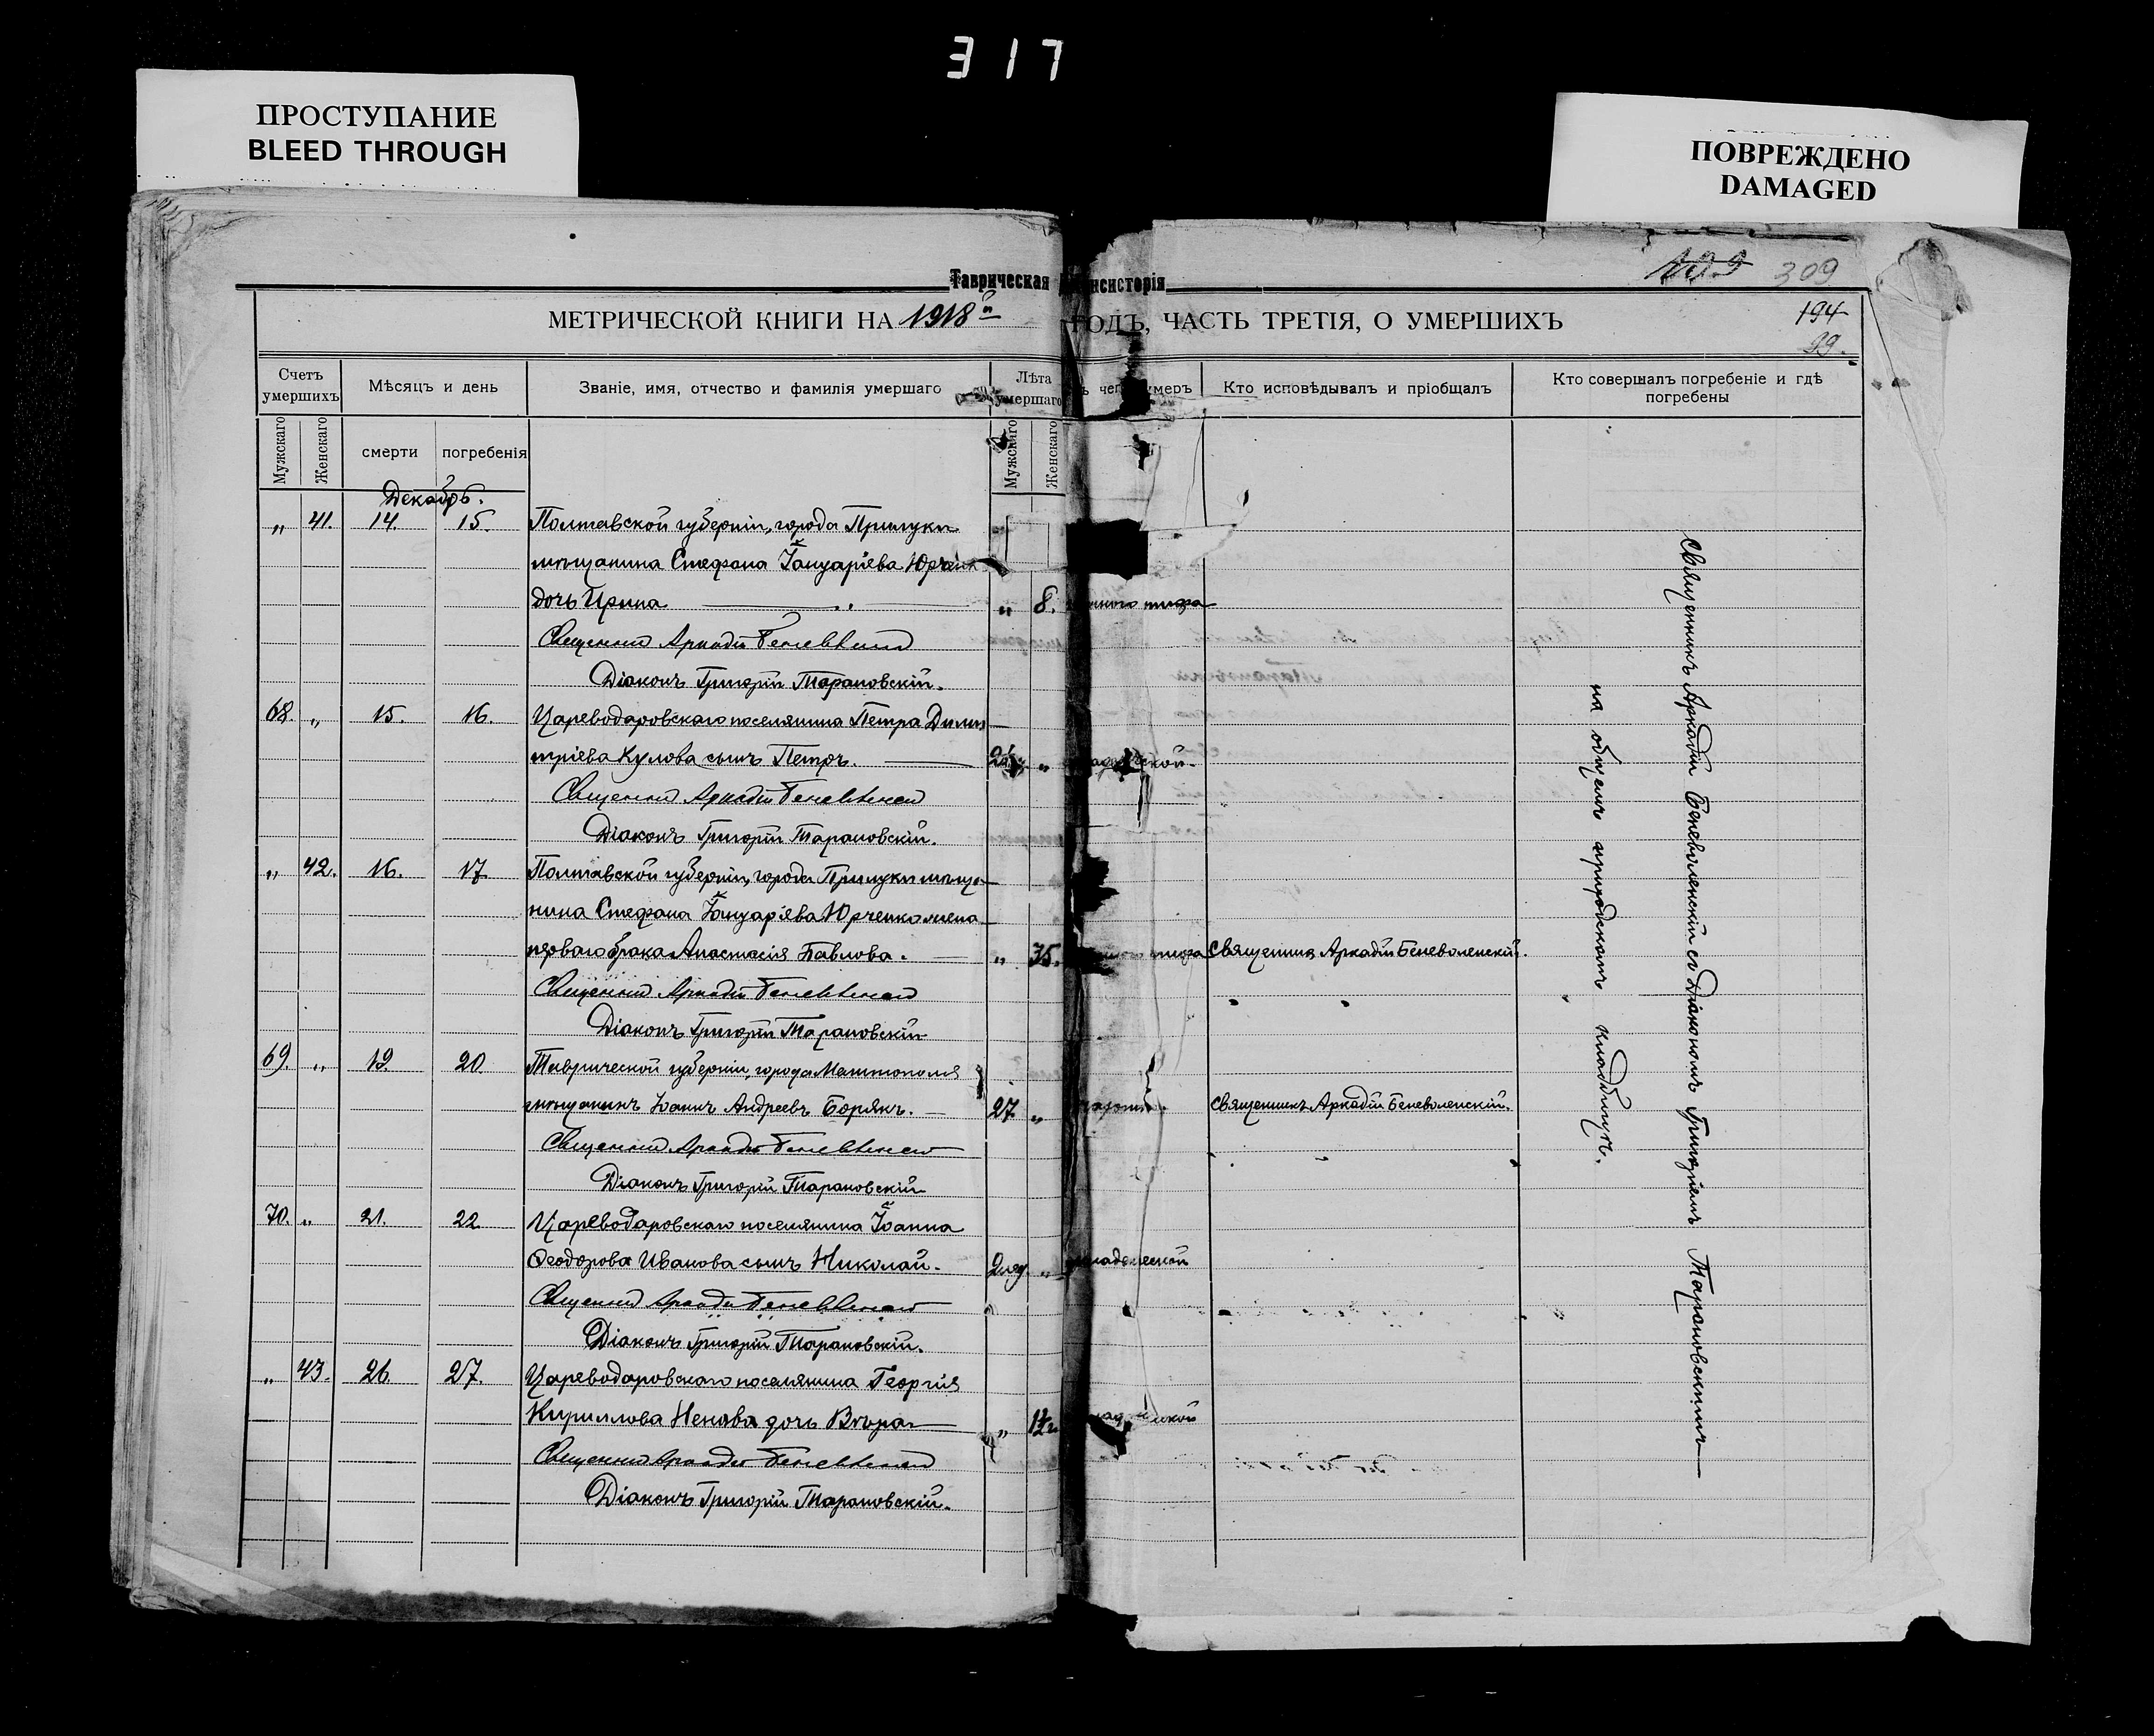 317
ПРОСТУПАНИЕ
BLEED THROUGH
ПОВРЕЖДЕНО
DAMAGED
309
Таврическая нсисторія
МЕТРИЧЕСКОЙ КНИГИ НА 1918й ГОДЪ, ЧАСТЬ ТРЕТІЯ, О УМЕРШИХЪ
194
99.
Счетъ умершихъ
Мѣсяцъ и день
Званіе, имя, отчество и фамилія умершаго
Лѣта умершаго
ъ чег умеръ
Кто исповѣдывалъ и пріобщалъ
Кто совершалъ погребеніе и гдѣ погребены
Мужскаго
Женскаго
смерти
погребенія
Мужскаго
Женскаго
Декабрь.
„ 41. 14. 15. Полтавской губерніи, города Прилуки
мѣщанина Стефана Іануаріева Юрченк
дочь Ирина „ 8. тифа
Священникъ Аркадій Беневоленскій
Діаконъ Григорій Тарановскій.
68 „ 15. 16. Цареводаровскаго поселянина Петра Дими
тріева Кулова сынъ Петръ. „
Священникъ Аркадій Беневоленскій
Діаконъ Григорій Тарановскій.
„ 42. 16. 17 Полтавской губерніи, города Прилуки мѣща
нина Стефана Іануаріева Юрченко жена
перваго брака Анастасія Павлова. „ 35. тифа Священникъ Аркадій Беневоленскій.
Священникъ Аркадій Беневоленскій
Діаконъ Григорій Тарановскій
69. „ 19. 20. Таврической губерніи, города Мелитополя
мѣщанинъ Іоаннъ Андреевъ Борякъ. 27 „ Священникъ Аркадій Беневоленскій.
Священникъ Аркадій Беневоленскій
Діаконъ Григорій Тарановскій
70. „ 21. 22. Цареводаровскаго поселянина Іоанна
Ѳеодорова Иванова сынъ Николай. „ младенческой
Священникъ Аркадій Беневоленскій
Діаконъ Григорій Тарановскій.
„ 43. 26. 27. Цареводаровскаго поселянина Георгія
Кириллова Ненова дочь Вѣра „
Священникъ Аркадій Беневоленскій
Діаконъ Григорій Тарановскій.
Священникъ Аркадій Беневоленскій съ Діакономъ Григоріемъ Тарановскимъ
на общемъ приходскомъ кладбищѣ.